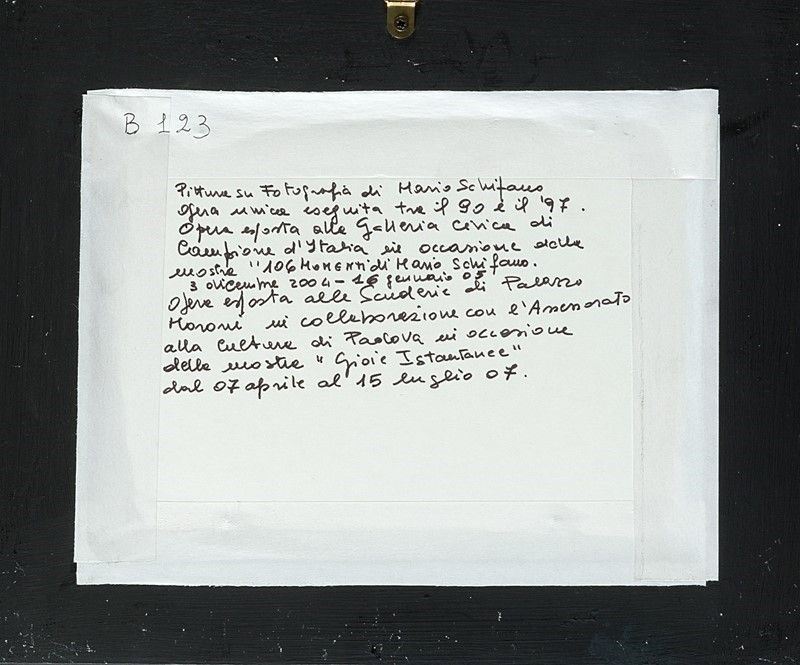 B 123
Pittura su Fotografia di Mario Schifano
Opera unica eseguita tra il 90 e il '97.
Opera esposta alla Galleria Civica di
Campione d'Italia in occasione della
mostra "106 MOMENTI di Mario Schifano.
3 dicembre 2004 - 16 gennaio 05
Opera esposta alle Scuderie di Palazzo
Moroni in collaborazione con l'Assessorato
alla Cultura di Padova in occasione
della mostra "Gioie Istantanee"
dal 07 aprile al 15 luglio 07.